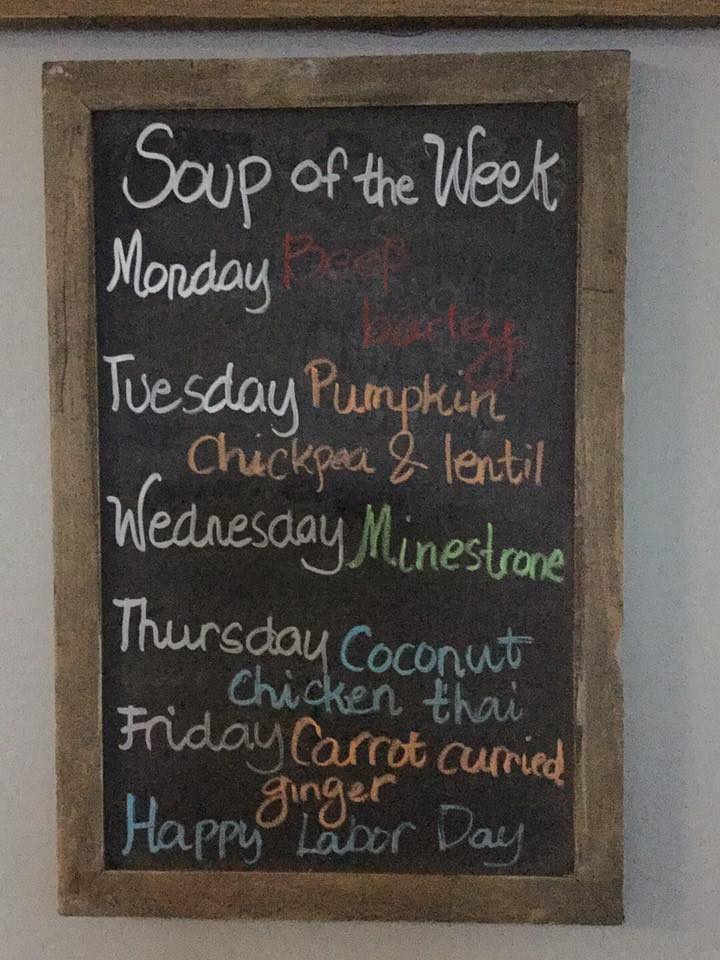 Soup of the Week
Monday Beef
barley
Tuesday Pumpkin
Chickpea & lentil
Wednesday Minestrone
Thursday Coconut
Chicken thai
Friday Carrot curried
ginger
Happy Labor Day